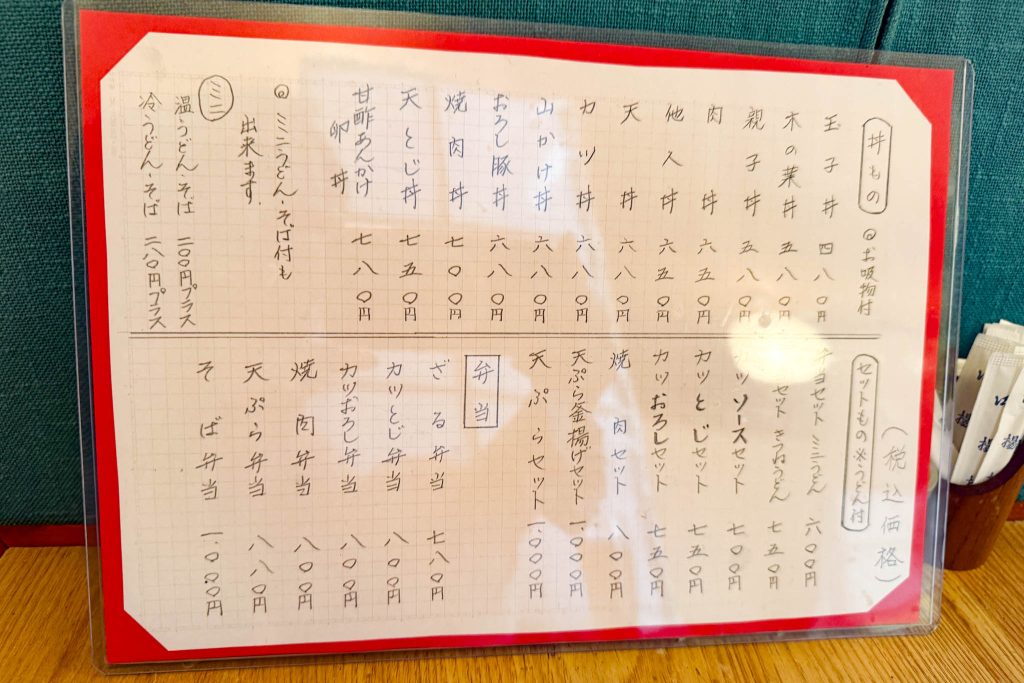 (税込価格)
丼もの ◎お吸物付
玉子丼 四八〇円
木の葉丼 五八〇円
親子丼 五八〇円
肉丼 六五〇円
他人丼 六五〇円
天丼 六八〇円
カツ丼 六八〇円
山かけ丼 六八〇円
おろし豚丼 六八〇円
焼肉丼 七〇〇円
天とじ丼 七五〇円
甘酢あんかけ
卵丼 七八〇円
◎ミニうどん・そば付も
出来ます.
ミニ
温うどん・そば 二〇〇円プラス
冷うどん・そば 二八〇円プラス
セットもの※うどん付
セット ミニうどん 六〇〇円
セット きつねうどん 七五〇円
ソースセット 七〇〇円
カツとじセット 七五〇円
カツおろしセット 七五〇円
焼肉セット 八〇〇円
天ぷら釜揚げセット 一.〇〇〇円
天ぷらセット 一.〇〇〇円
弁当
ざる弁当 七八〇円
カツとじ弁当 八〇〇円
カツおろし弁当 八〇〇円
焼肉弁当 八〇〇円
天ぷら弁当 八八〇円
そば弁当 一.〇〇〇円